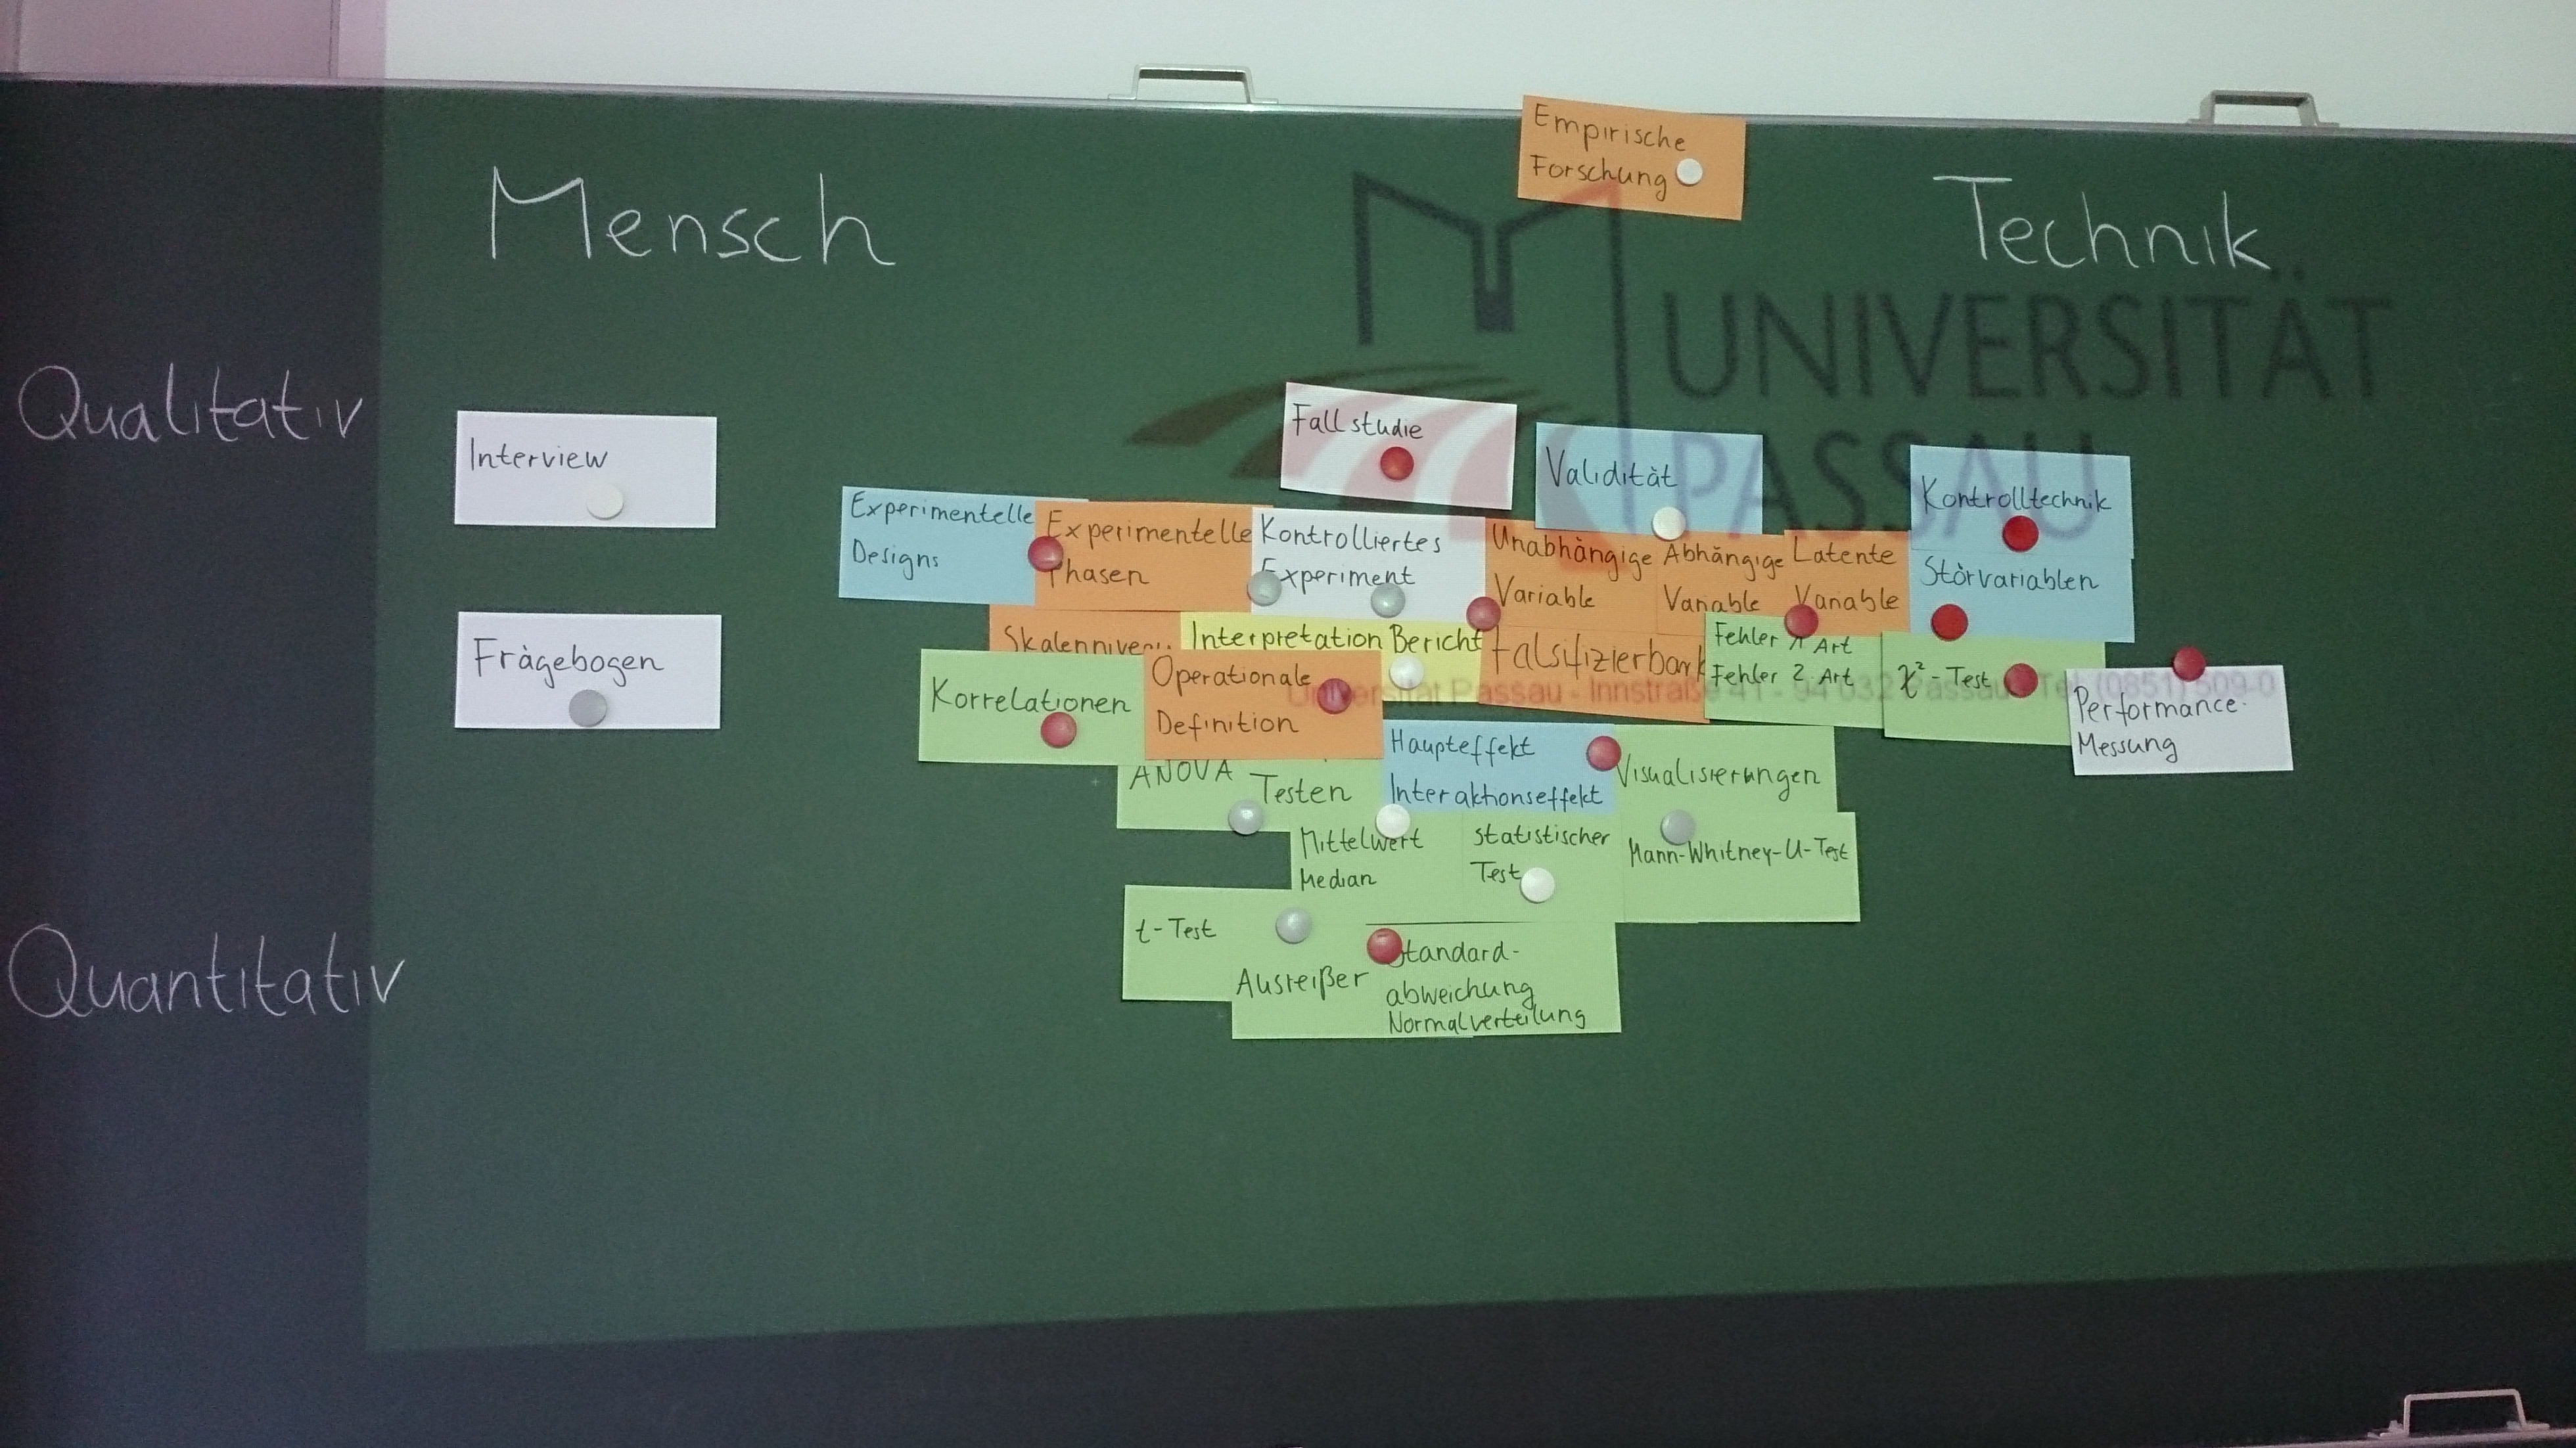 Empirische
Forschung
Mensch
Technik
UNIVERSITÄT
PASSAU
Qualitativ
Interview
Fallstudie
Validität
Kontrolltechnik
Experimentelle
Designs
Experimentelle
Phasen
Kontrolliertes
Experiment
Unabhängige
Variable
Abhängige
Variable
Latente
Variable
Störvariablen
Frägebogen
Interpretation
Bericht
Fehler 1 Art
Fehler 2. Art
χ²-Test
Performance-
Messung
Korrelationen
Operationale
Definition
Universität Passau - Innstraße 41 - 94032 Passau
(0851) 509-0
Haupteffekt
Interaktionseffekt
Visualisierungen
ANOVA
Testen
Mittelwert
Median
statistischer
Test
Mann-Whitney-U-Test
Quantitativ
t-Test
Ausreißer
Standard-
abweichung
Normalverteilung